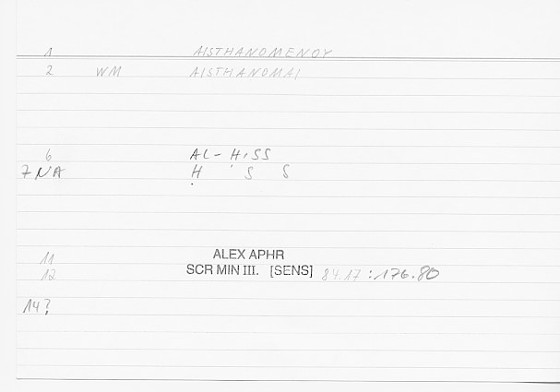 1 AISTHANOMENOY
2 WM AISTHANOMAI
6 AL-ḤISS
7 NA Ḥ S S
11 ALEX APHR
12 SCR MIN III. [SENS] 84.17:176.80
14?